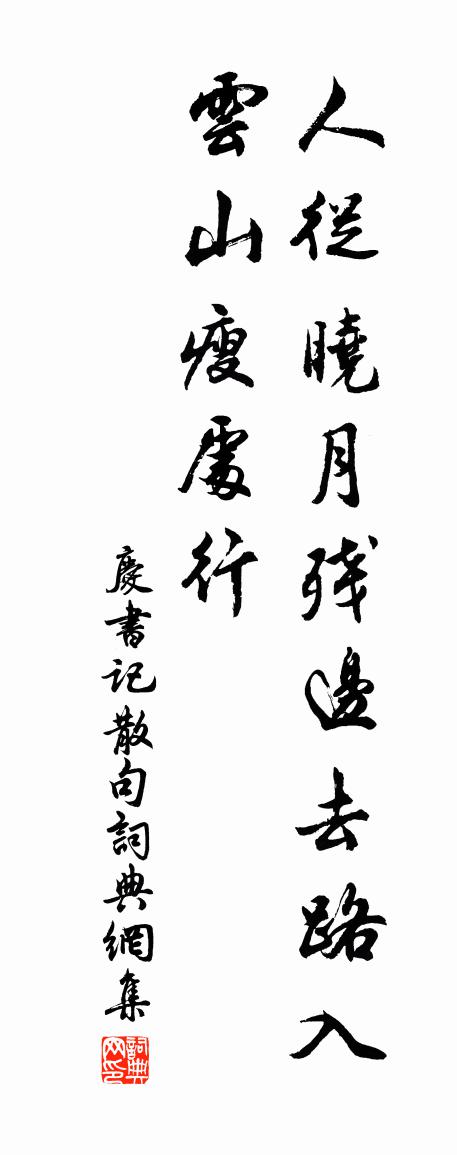 人從曉月殘邊去路入
雲山瘦處行
慶書記散句詞典網集
詞典
网印